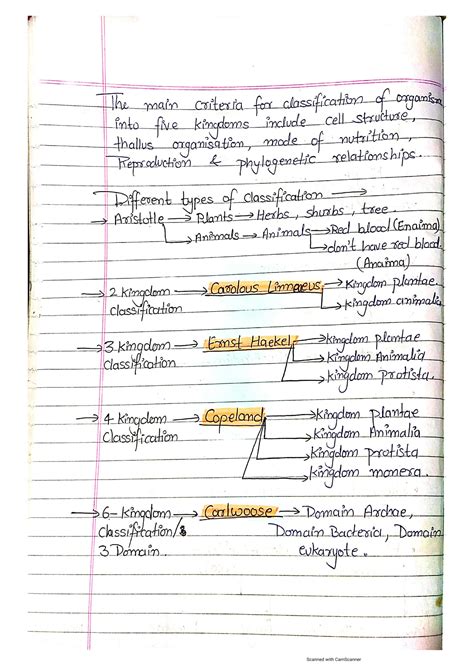 The main criteria for classification of organism
into five kingdoms include cell structure,
thallus organisation, mode of nutrition,
Reproduction & phylogenetic relationships.
Different types of classification →
→ Aristotle → Plants → Herbs, shurbs, tree.
→ Animals → Animals → Red blood (Enaima)
→ don't have red blood.
(Anaima)
→ 2 kingdom → Carolous Linnaeus → Kingdom plantae.
Classification → Kingdom animalia
→ 3 kingdom → Ernst Haekel → Kingdom plantae
classification → Kingdom Animalia
→ Kingdom protista.
→ 4 kingdom → Copeland → Kingdom plantae
Classification → Kingdom Animalia
→ Kingdom protista
→ Kingdom monera.
→ 6-kingdom → Carlwoose → Domain Archae,
Classification/ Domain Bacteria, Domain
3 Domain. eukaryote.
Scanned with CamScanner